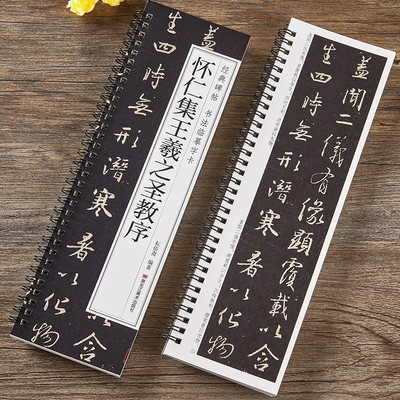 经典碑帖 书法临摹字卡
怀仁集王羲之圣教序
编著
盖
含
生四時無形潛寒暑以化物
蓋聞二儀有像顯覆載以含
生四時無形潛寒暑以化物